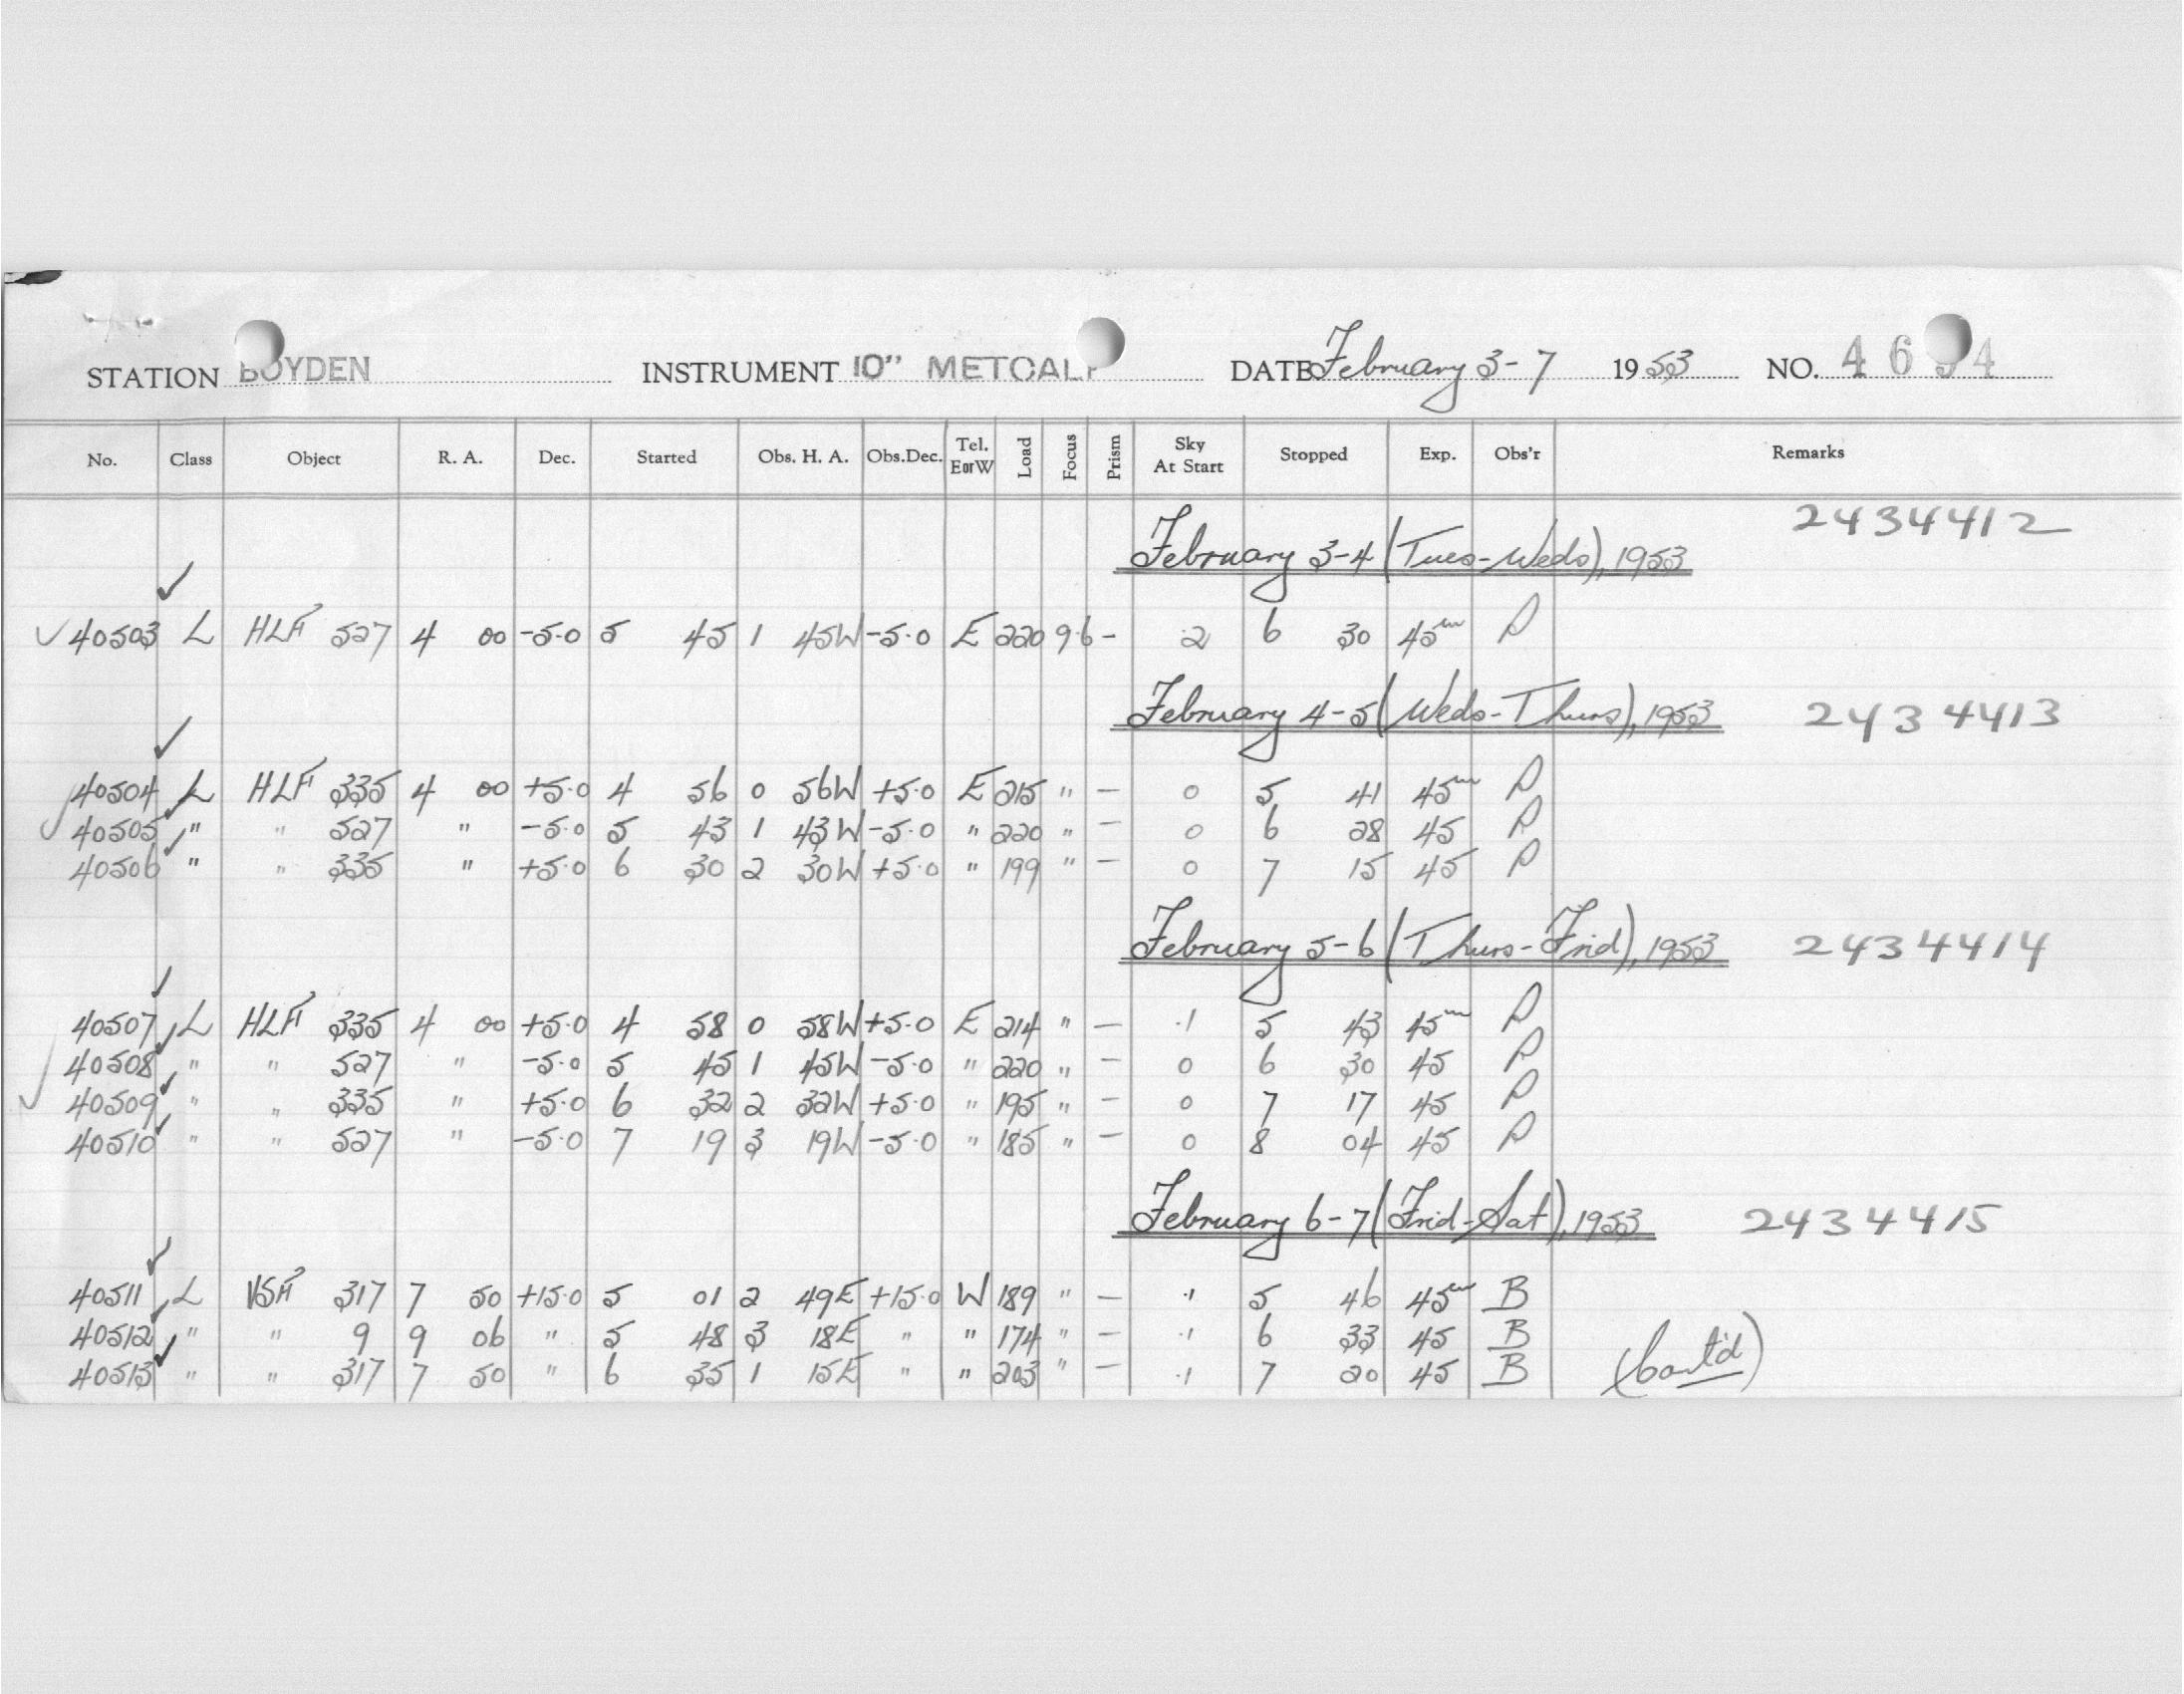 STATION BOYDEN INSTRUMENT 10" METCALF DATE February 3-7 1953 NO. 4694
No. Class Object R. A. Dec. Started Obs. H. A. Obs.Dec. Tel. EorW Load Focus Prism Sky At Start Stopped Exp. Obs'r Remarks
2434412
February 3-4 (Tues-Weds), 1953
✓ 40503 L HLF 527 4 00 -5.0 5 45 1 45W -5.0 E 220 9.6 - 2 6 30 45m
February 4-5 (Weds-Thurs), 1953 2434413
40504 L HLF 335 4 00 +5.0 4 56 0 56W +5.0 E 215 " - 0 5 41 45m
40505 " " 527 " -5.0 5 43 1 43W -5.0 " 220 " - 0 6 28 45
40506 " " 335 " +5.0 6 30 2 30W +5.0 " 199 " - 0 7 15 45
February 5-6 (Thurs-Frid), 1953 2434414
40507 L HLF 335 4 00 +5.0 4 58 0 58W +5.0 E 214 " - .1 5 43 45m
40508 " " 527 " -5.0 5 45 1 45W -5.0 " 220 " - 0 6 30 45
40509 " " 335 " +5.0 6 32 2 32W +5.0 " 195 " - 0 7 17 45
40510 " " 527 " -5.0 7 19 3 19W -5.0 " 185 " - 0 8 04 45
February 6-7 (Frid-Sat), 1953 2434415
40511 L VSF 317 7 50 +15.0 5 01 2 49E +15.0 W 189 " - .1 5 46 45m B
40512 " " 9 9 06 " 5 48 3 18E " " 174 " - .1 6 33 45 B
40513 " " 317 7 50 " 6 35 1 15E " " 203 " - .1 7 20 45 B
(Cont'd)